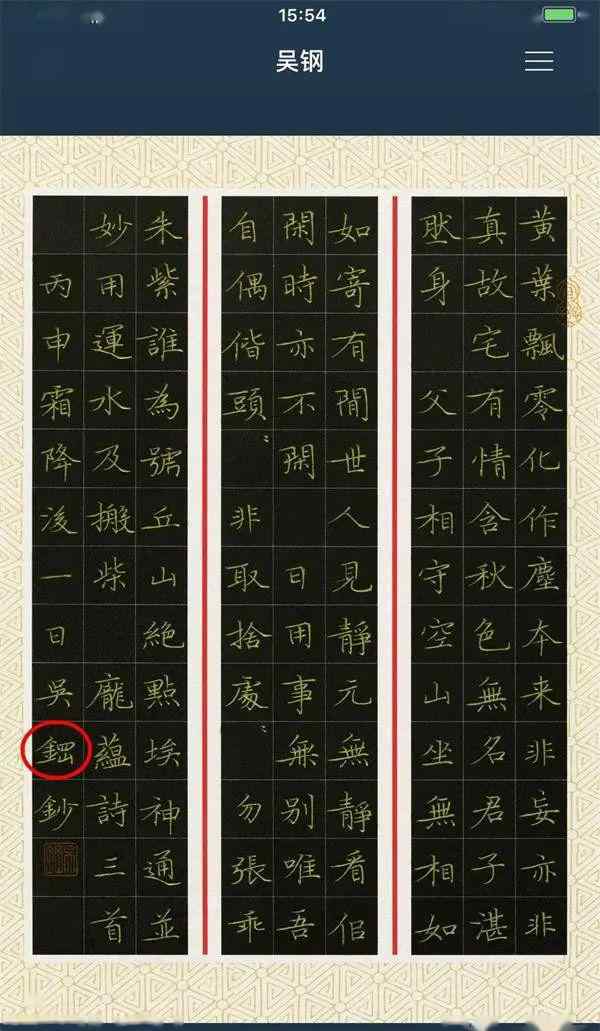 15:54
吴钢
黄葉飄零化作塵本来非妄亦非
真故宅有情含秋色無名君子湛
肰身 父子相守空山坐無相如
如寄有間世人見靜元無靜看侣
閑時亦不閑 日用事無別唯吾
自偶偕頭〻 非取捨處〻 勿張乖
朱紫誰為號丘山絕點埃神通並
妙用運水及搬柴 龐蘊詩三首
丙申霜降後一日吳鋼鈔